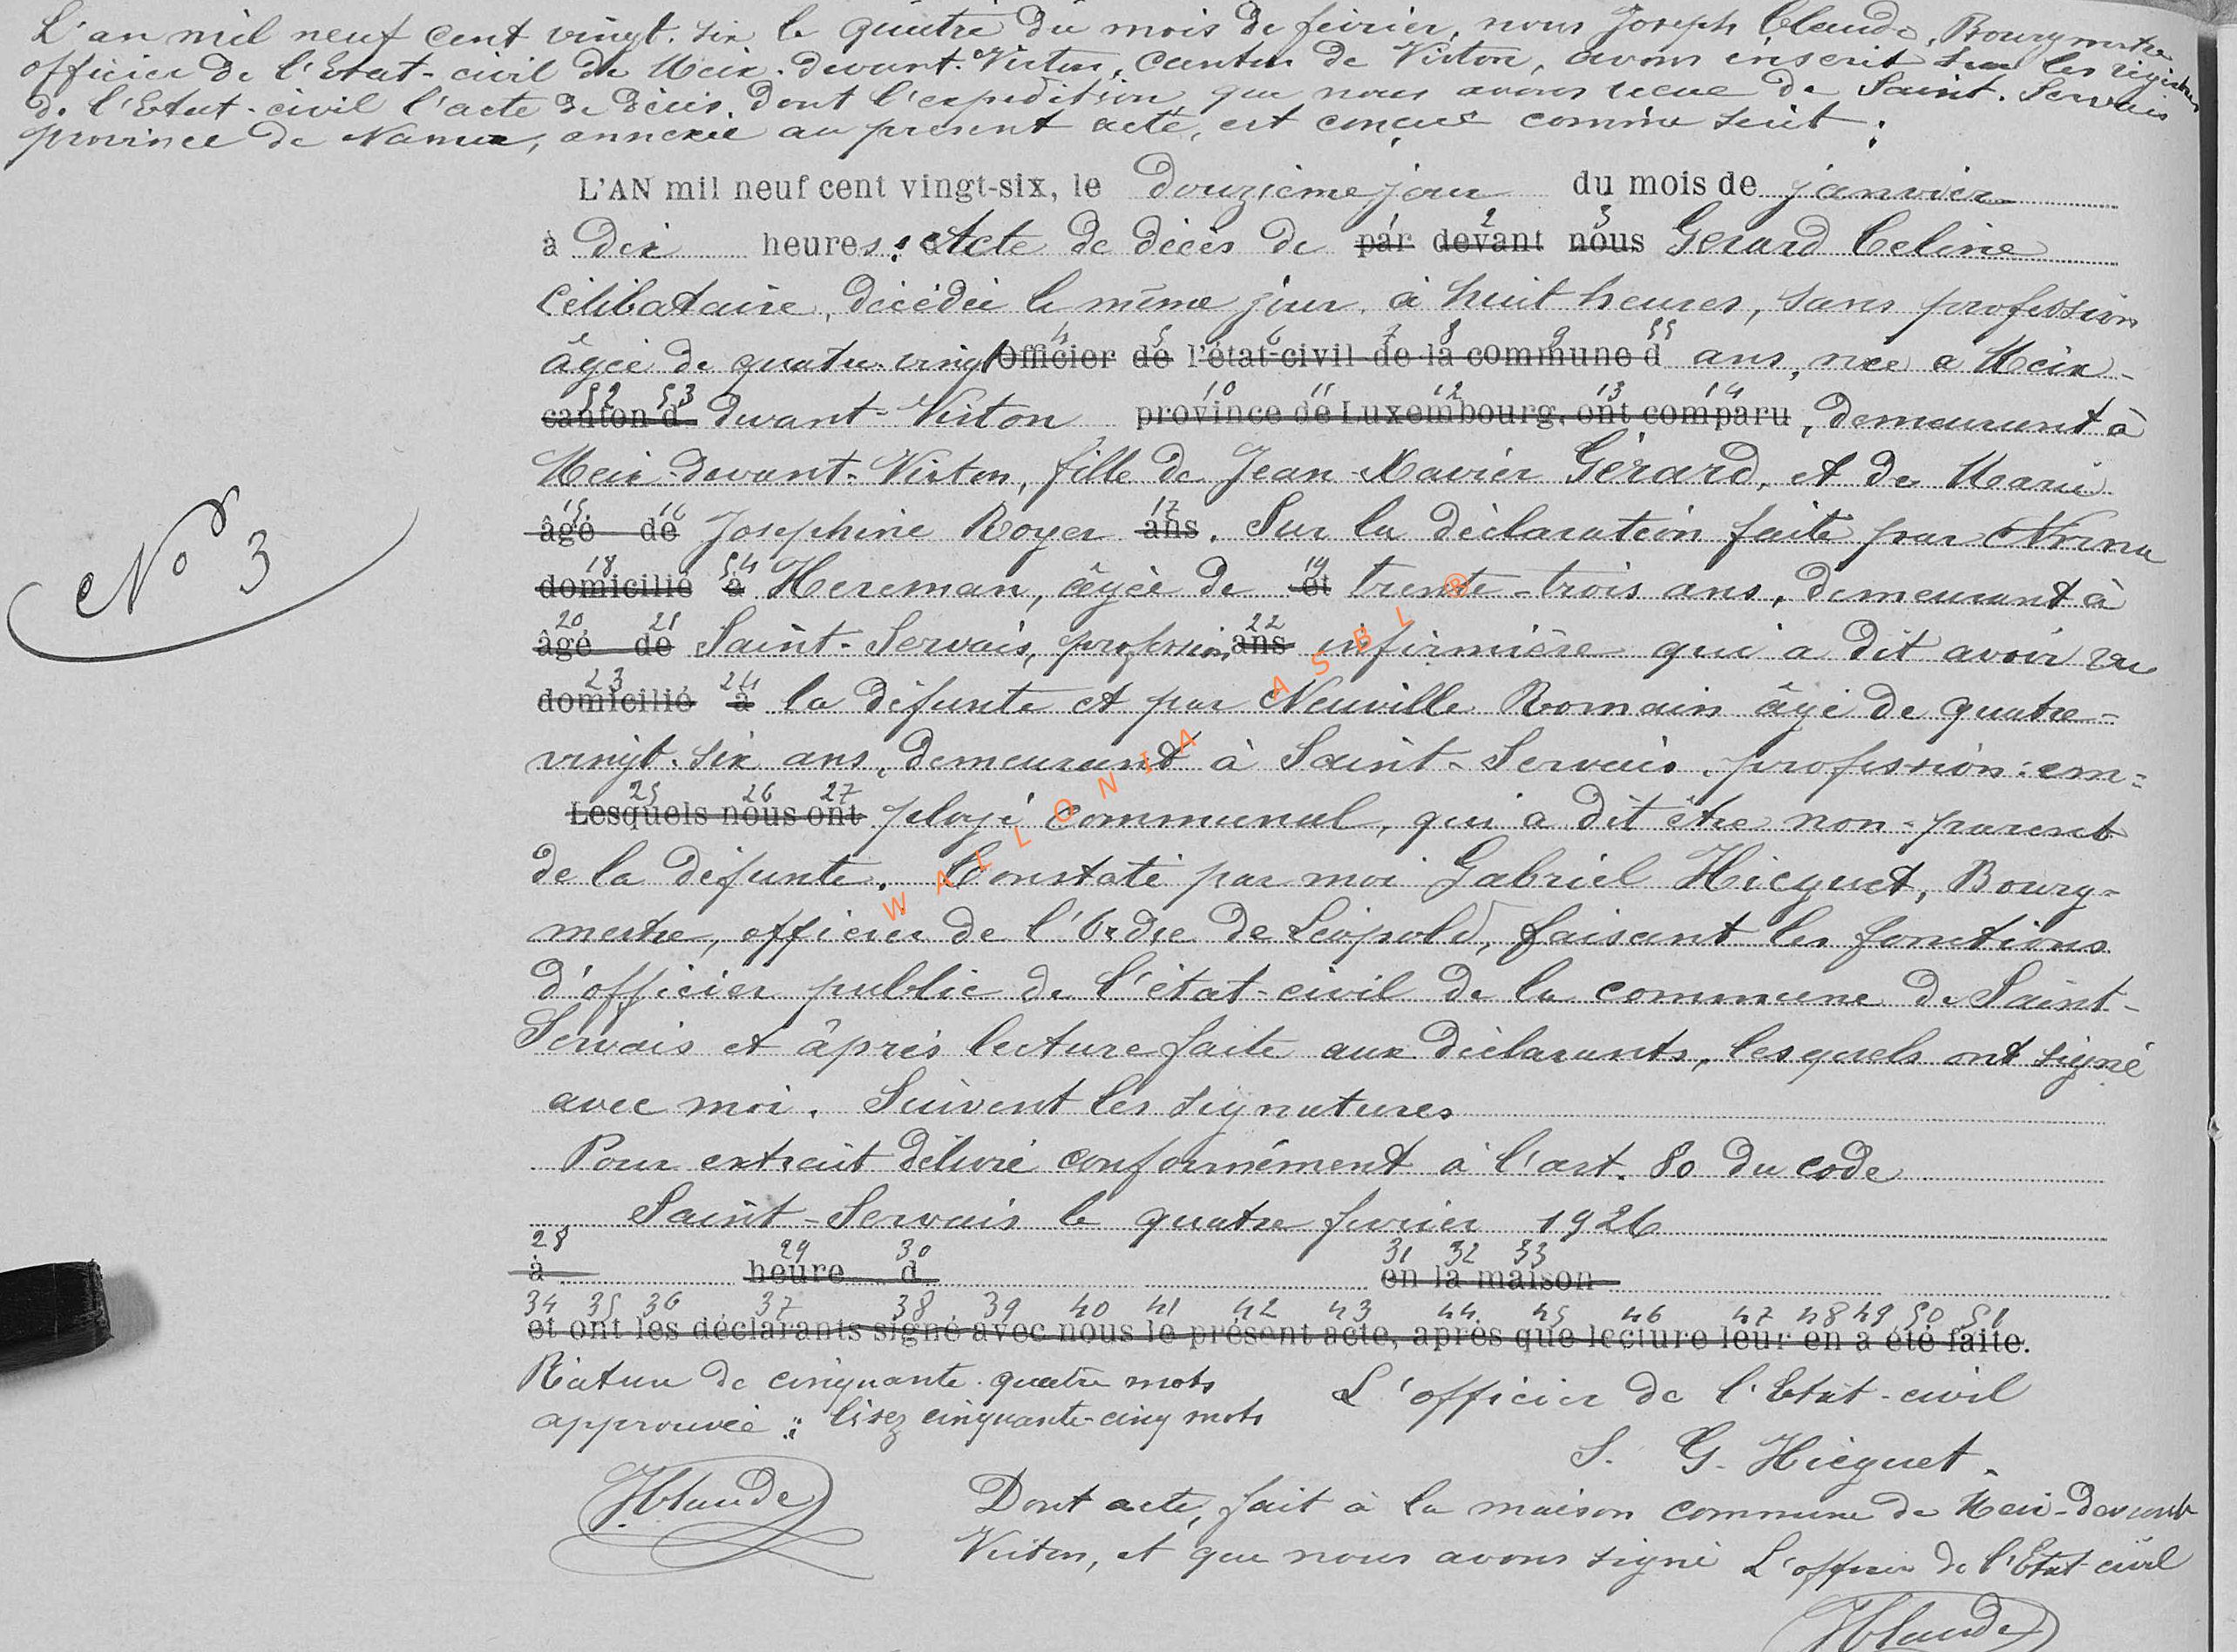 L'an mil neuf cent vingt-six le quatre du mois de février, nous Joseph Claude, Bourgmestre
officier de l'Etat-civil de Meix-devant-Virton, canton de Virton, avons inscrit sur les registres
de l'Etat-civil l'acte de décès dont l'expédition, que nous avons reçue de Saint-Servais
province de Namur, annexée au présent acte, est conçue comme suit :
L'AN mil neuf cent vingt-six, le douzième jour du mois de janvier
1 2 3
à dix heures : Acte de décès de par devant nous Gerard Celine
célibataire, décédée le même jour, à huit heures, sans profession
4 5 6 7 8 9 55
âgée de quatre-vingt Officier de l'état-civil de la commune d ans, née a Meix-
52 53 10 11 12 13 14
canton d devant-Virton province de Luxembourg, ont comparu, demeurant à
Meix-devant-Virton, fille de Jean-Xavier Gérard, et de Marie
15 16 17
âgé de Josephine Royer ans. Sur la déclaration faite par Norma
18 54 19
domicilié à Hereman, âgée de et trente-trois ans, demeurant à
20 21 22
âgé de Saint-Servais, profession ans infirmière qui a dit avoir vu
23 24
domicilié à la défunte et par Neuville Romain âgé de quatre-
vingt-six ans, demeurant à Saint-Servais, profession : em-
25 26 27
Lesquels nous ont ployé communal, qui a dit être non-parent
de la défunte. Constaté par moi Gabriel Hicguet, Bourg-
mestre, officier de l'Ordre de Léopold, faisant les fonctions
d'officier public de l'état-civil de la commune de Saint-
Servais et après lecture faite aux déclarants, lesquels ont signé
avec moi. Suivent les signatures
Pour extrait délivré conformément à l'art. 80 du code
Saint-Servais le quatre fevrier 1926
28 29 30 31 32 33
à heure d en la maison
34 35 36 37 38 39 40 41 42 43 44 45 46 47 48 49 50 51
et ont les déclarants signé avec nous le présent acte, après que lecture leur en a été faite.
Rature de cinquante-quatre mots L'officier de l'Etat-civil
approuvée : lisez cinquante-cinq mots
S. G. Hicguet.
JClaude Dont acte, fait à la maison commune de Meix-devant
Virton, et que nous avons signé L'officier de l'Etat-civil
JClaude
No 3
WALLONIA ASBL ®